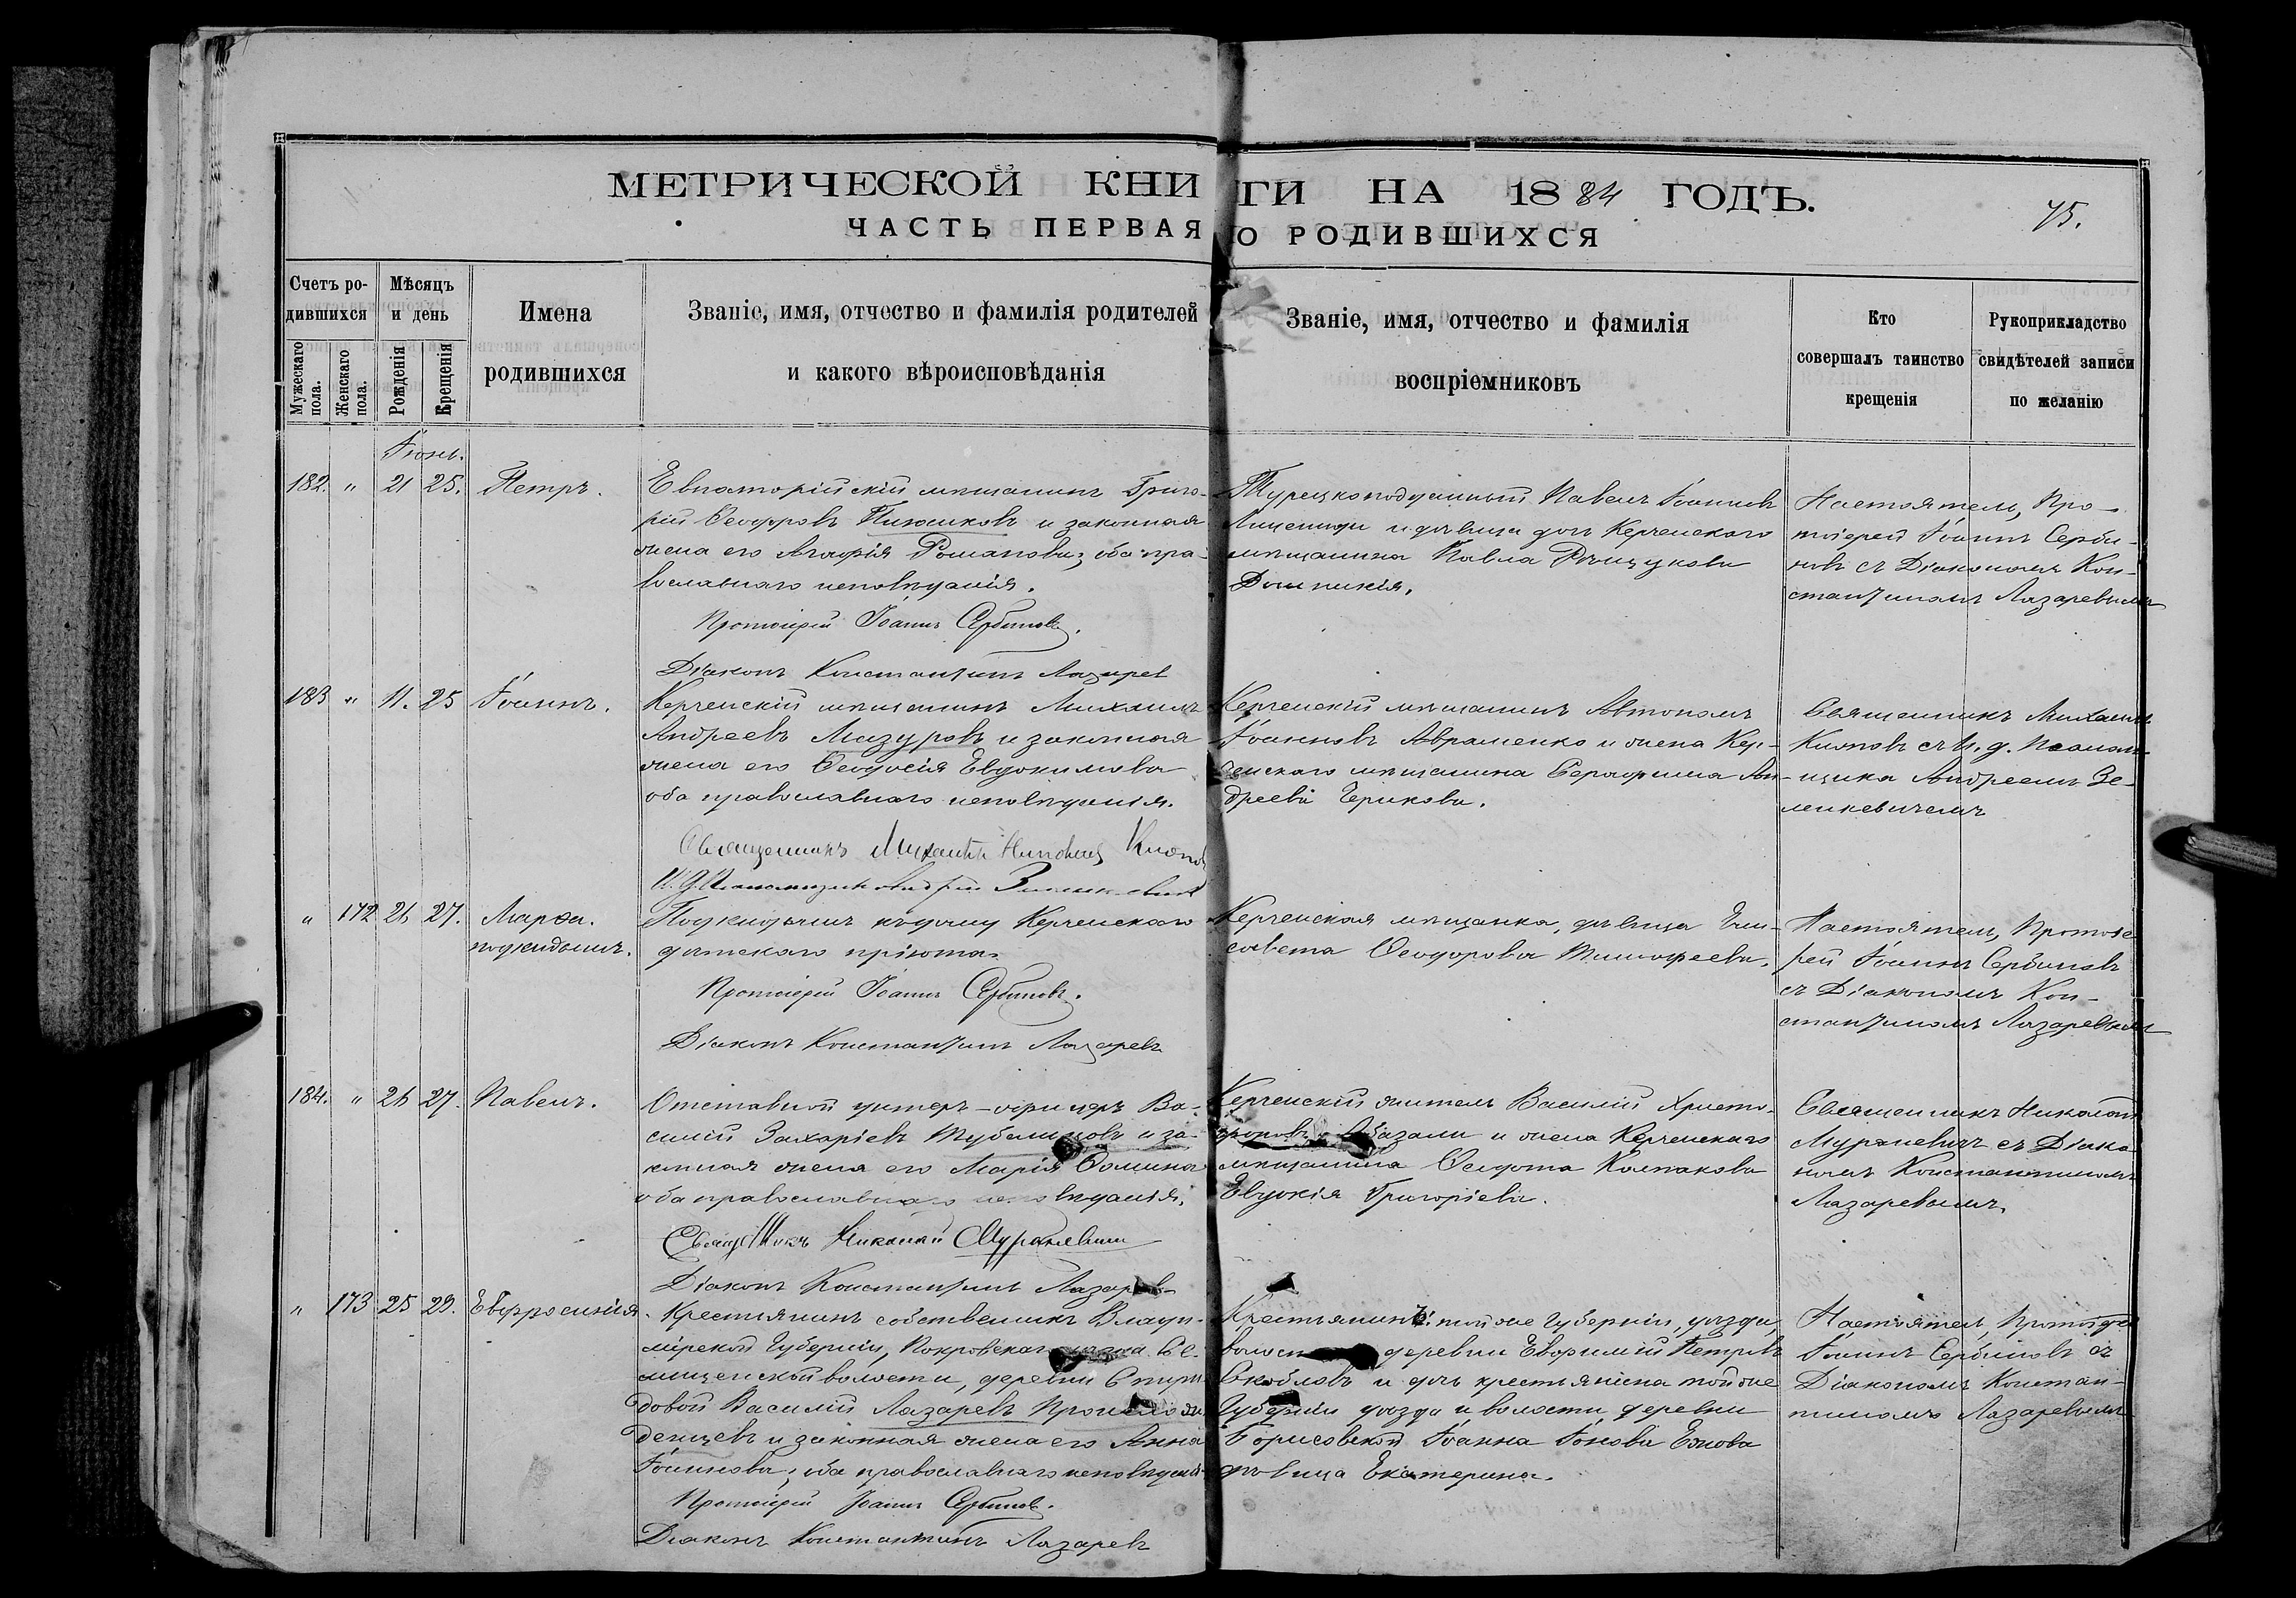 МЕТРИЧЕСКОЙ КНИГИ НА 1884 ГОДЪ.
ЧАСТЬ ПЕРВАЯ О РОДИВШИХСЯ
75.
Счетъ родившихся
Мужескаго пола.
Женскаго пола.
Мѣсяцъ и день
Рожденія
Крещенія
Имена родившихся
Званіе, имя, отчество и фамилія родителей
и какого вѣроисповѣданія
Званіе, имя, отчество и фамилія
воспріемниковъ
Кто
совершалъ таинство
крещенія
Рукоприкладство
свидѣтелей записи
по желанію
Іюнь.
182. " 21 25. Петръ.
Евпаторійскій мѣщанинъ Григо-
рій Ѳеодоровъ и законная
жена его Агафія Романова, оба пра-
вославнаго исповѣданія.
Протоіерей Іоаннъ Сербиновъ.
Діаконъ Константинъ Лазарев
Турецкоподданный Павелъ Іоанновъ
и дѣвица дочь Керченскаго
мѣщанина Павла
Домникія.
Настоятель, Про-
тоіерей Іоаннъ Серби-
новъ съ Діакономъ Кон-
стантиномъ Лазаревымъ
183 " 11. 25 Іоаннъ.
Керченскій мѣщанинъ Михаилъ
Андреевъ Мазуровъ и законная
жена его Ѳеодосія Евдокимова
оба православнаго исповѣданія.
Священникъ Михаилъ Кияновъ
И. Д. Псаломщика Андрей Зеленкевичъ
Керченскій мѣщанинъ Автономъ
Іоанновъ Авраменко и жена Кер-
ченскаго мѣщанина Серафима Ан-
дреева Черикова.
Священникъ Михаилъ
Кияновъ съ И. д. Псалом-
щика Андреемъ Зе-
ленкевичемъ
" 172 26 27. Марѳа.
подкидышъ.
Подкидышъ къ дому Керченскаго
дѣтскаго пріюта.
Протоіерей Іоаннъ Сербиновъ.
Діаконъ Константинъ Лазаревъ
Керченская мѣщанка, дѣвица Ели-
савета Ѳеодорова Тимофеева.
Настоятель, Протоіе-
рей Іоаннъ Сербиновъ
съ Діакономъ Кон-
стантиномъ Лазаревымъ
184. " 26 27. Павелъ.
Отставной унтеръ-офицеръ Ва-
силій Захаріевъ и за-
конная жена его Марія Ѳомина
оба православнаго исповѣданія.
Священникъ Николай Мураневичъ
Діаконъ Константинъ Лазаревъ
Керченскій житель Василій Христо-
форовъ и жена Керченскаго
мѣщанина Ѳедота Колпакова
Евдокія Григоріева.
Священникъ Николай
Мураневичъ съ Діако-
номъ Константиномъ
Лазаревымъ.
" 173 25 29. Евфросинія.
Крестьянинъ собственникъ Влади-
мірской Губерніи, Покровскаго уѣзда
волости, деревни Спири-
довой Василій Лазаревъ
и законная жена его Анна
Іоаннова, оба православнаго исповѣданія
Протоіерей Іоаннъ Сербиновъ.
Діаконъ Константинъ Лазаревъ
Крестьянинъ той же Губерніи, уѣзда,
деревни Евфимій Петровъ
Скобловъ и дочь крестьянина той же
Губерніи уѣзда и волости деревни
Борисовской Іоанна Іонова Ежова
дѣвица Екатерина.
Настоятель, Протоіерей
Іоаннъ Сербиновъ съ
Діакономъ Констан-
тиномъ Лазаревымъ